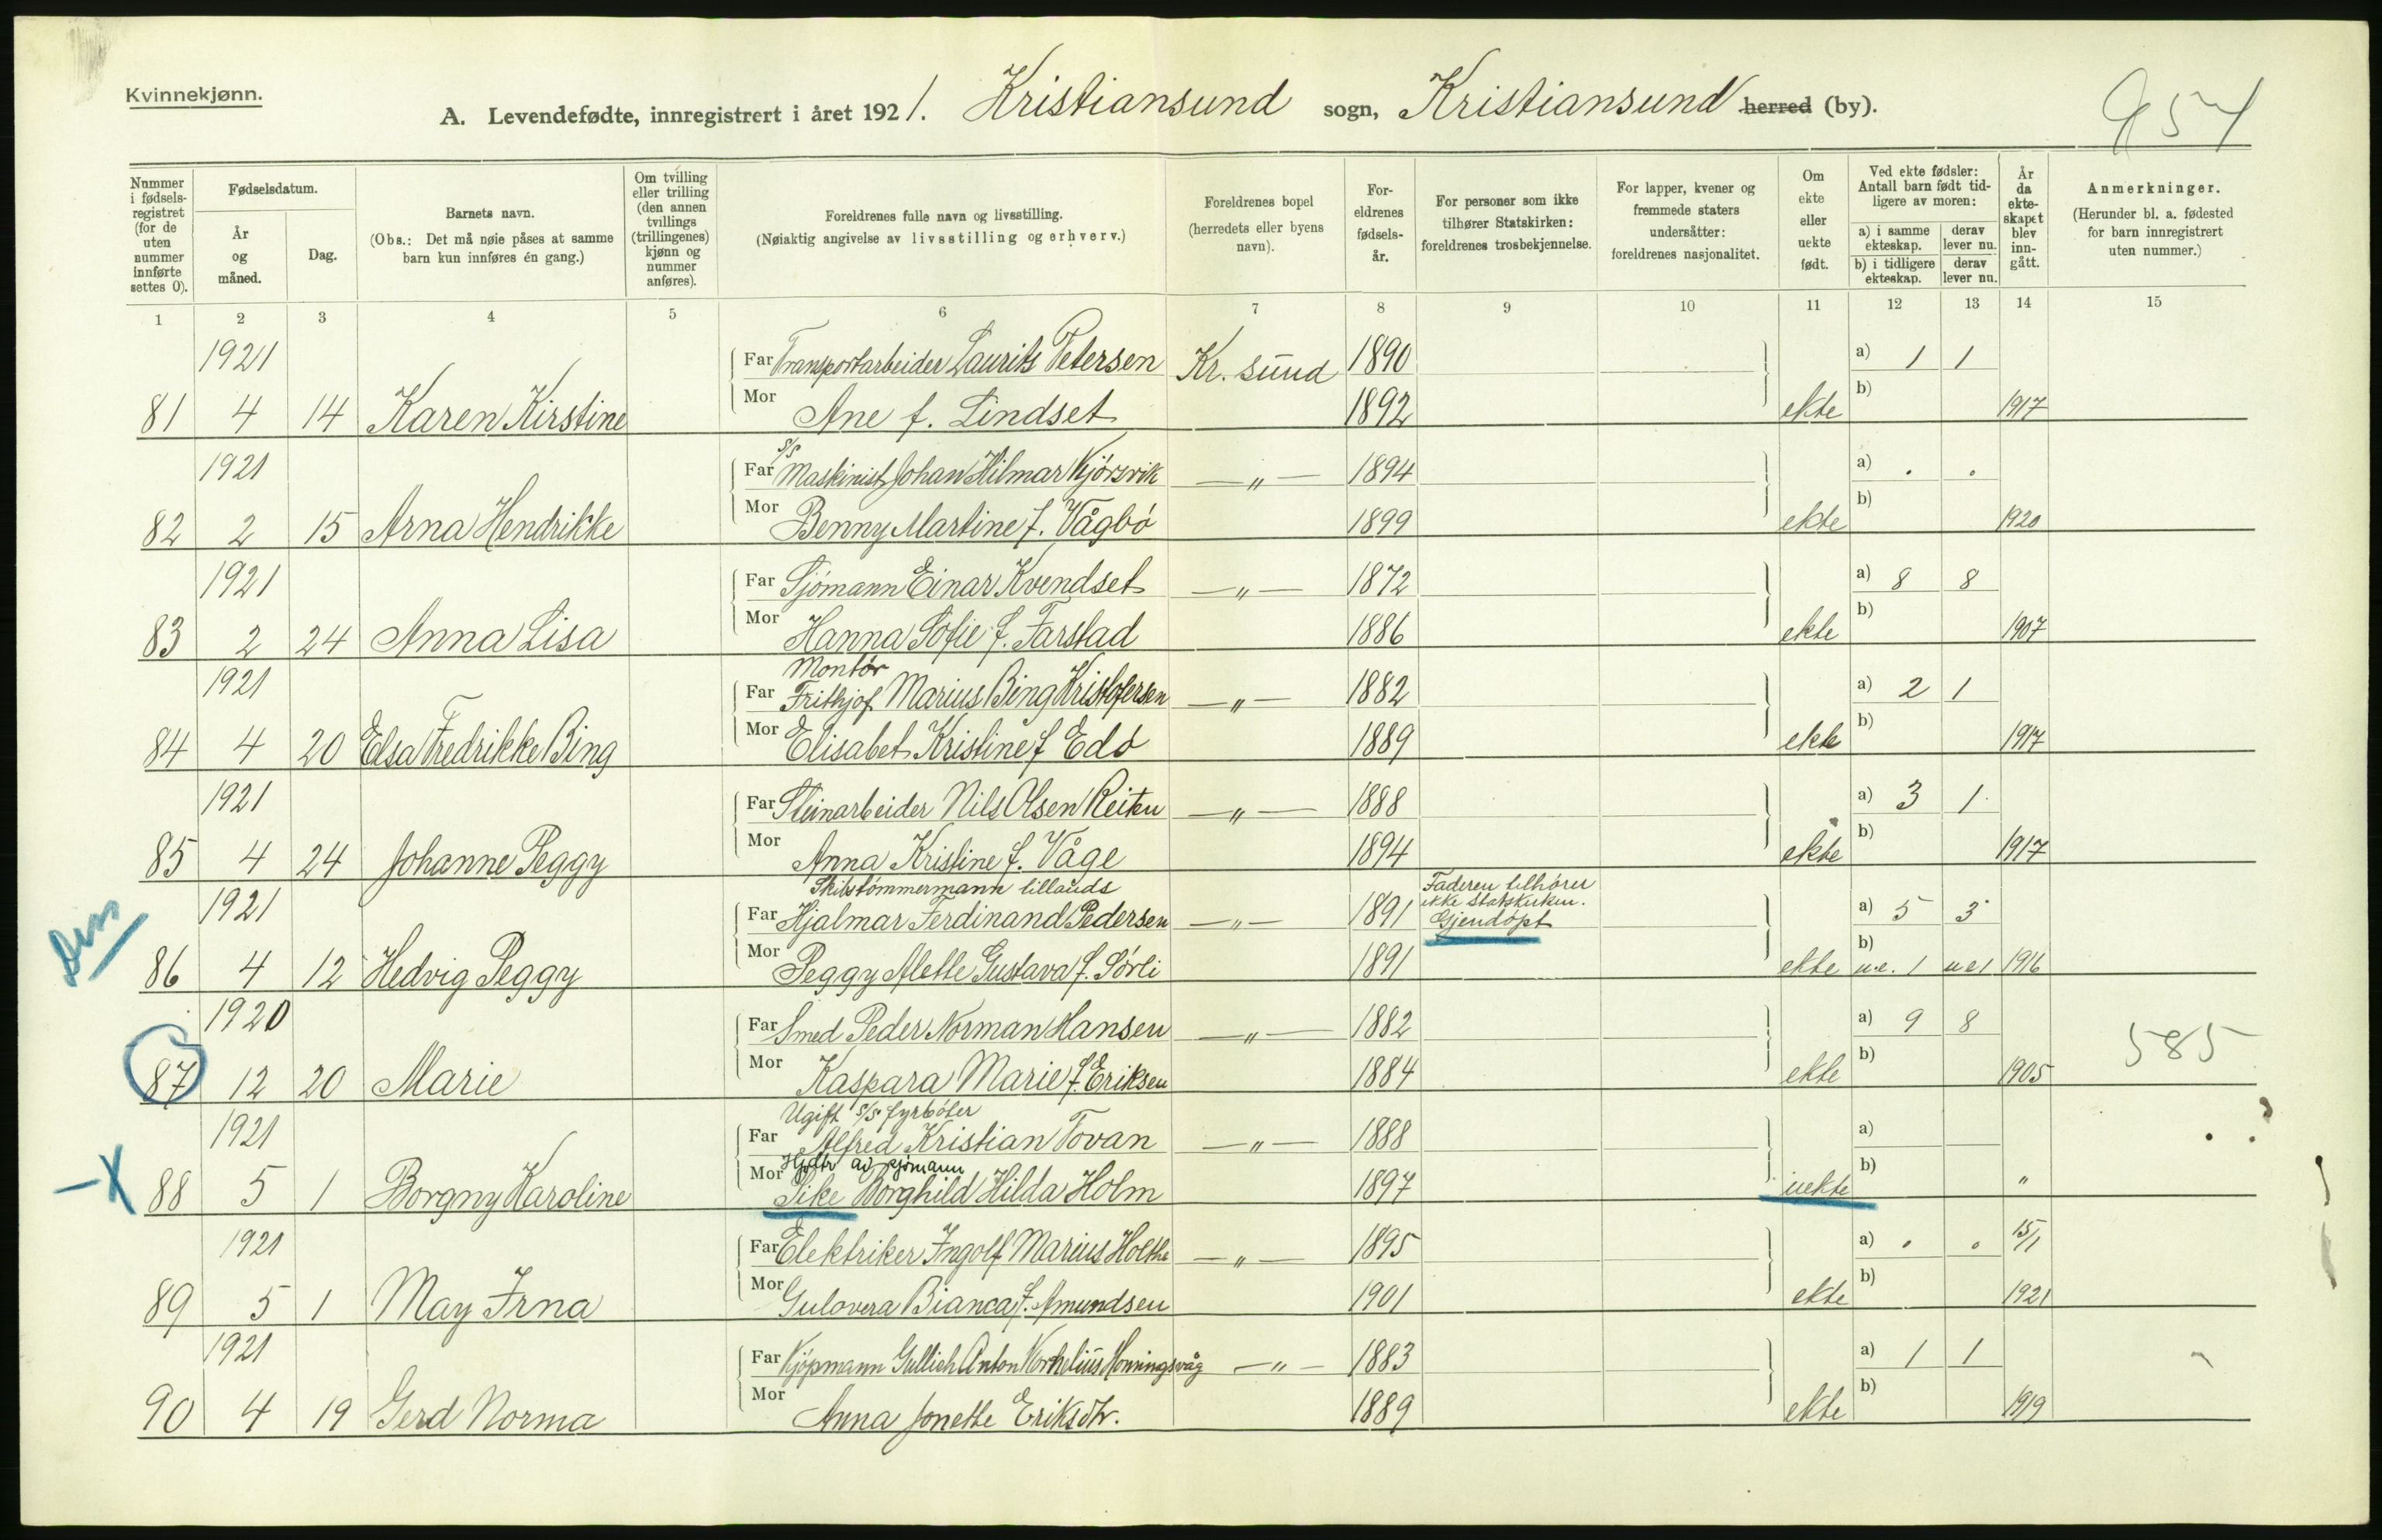 Kvinnekjønn.
A. Levendefødte, innregistrert i året 1921. Kristiansund sogn, Kristiansund herred (by).
954
Nummer i fødselsregistret (for de uten nummer innførte settes 0).
Fødselsdatum.
År og måned.
Dag.
Barnets navn.
(Obs.: Det må nøie påses at samme barn kun innføres én gang.)
Om tvilling eller trilling (den annen tvillings (trillingenes) kjønn og nummer anføres).
Foreldrenes fulle navn og livsstilling.
(Nøiaktig angivelse av livsstilling og erhverv.)
Foreldrenes bopel (herredets eller byens navn).
Foreldrenes fødselsår.
For personer som ikke tilhører Statskirken: foreldrenes trosbekjennelse.
For lapper, kvener og fremmede staters undersåtter: foreldrenes nasjonalitet.
Om ekte eller uekte født.
Ved ekte fødsler: Antall barn født tidligere av moren:
a) i samme ekteskap. derav lever nu.
b) i tidligere ekteskap. derav lever nu.
År da ekteskapet blev inngått.
Anmerkninger.
(Herunder bl. a. fødested for barn innregistrert uten nummer.)
1 2 3 4 5 6 7 8 9 10 11 12 13 14 15
1921 Far Transportarbeider Laurits Petersen Kr. sund 1890 a) 1 1
81 4 14 Karen Kirstine Mor Ane f. Lindset 1892 ekte b) 1917
s/s
1921 Far Maskinist Johan Hilmar Kjörsvik —"— 1894 a) . .
82 2 15 Arna Hendrikke Mor Benny Martine f. Vågbö 1899 ekte b) 1920
1921 Far Sjömann Einar Kvendset —"— 1872 a) 8 8
83 2 24 Anna Lisa Mor Hanna Sofie f. Farstad 1886 ekte b) 1907
Montör
1921 Far Frithjof Marius Bing Kristofersen —"— 1882 a) 2 1
84 4 20 Elsa Fredrikke Bing Mor Elisabet Kristine f Edö 1889 ekte b) 1917
1921 Far Steinarbeider Nils Olsen Reiten —"— 1888 a) 3 1
85 4 24 Johanne Peggy Mor Anna Kristine f. Våge 1894 ekte b) 1917
Skibstömmermann tillands Faderen tilhörer
ikke statskirken.
1921 Far Hjalmar Ferdinand Pedersen —"— 1891 Gjendöpt a) 5 3
86 4 12 Hedvig Peggy Mor Peggy Alette Gustava f. Sörli 1891 ekte b) u.e. 1 u e 1 1916
1920 Far Smed Peder Norman Hansen —"— 1882 a) 9 8 585
87 12 20 Marie Mor Kaspara Marie f. Eriksen 1884 ekte b) 1905
Ugift s/s fyrböter
1921 Far Alfred Kristian Tovan —"— 1888 a)
Hjdtr av sjömann
—X 88 5 1 Borgny Karoline Mor Pike Borghild Hilda Holm 1897 uekte b) "
1921 Far Elektriker Ingolf Marius Holthe —"— 1895 a) . . 15/1
89 5 1 May Irna Mor Gulovera Bianca f. Amundsen 1901 ekte b) 1921
1921 Far Kjöpmann Gullich Anton Kornelius Honningsvåg —"— 1883 a) 1 1
90 4 19 Gerd Norma Mor Anna Jonette Eriksdtr. 1889 ekte b) 1919